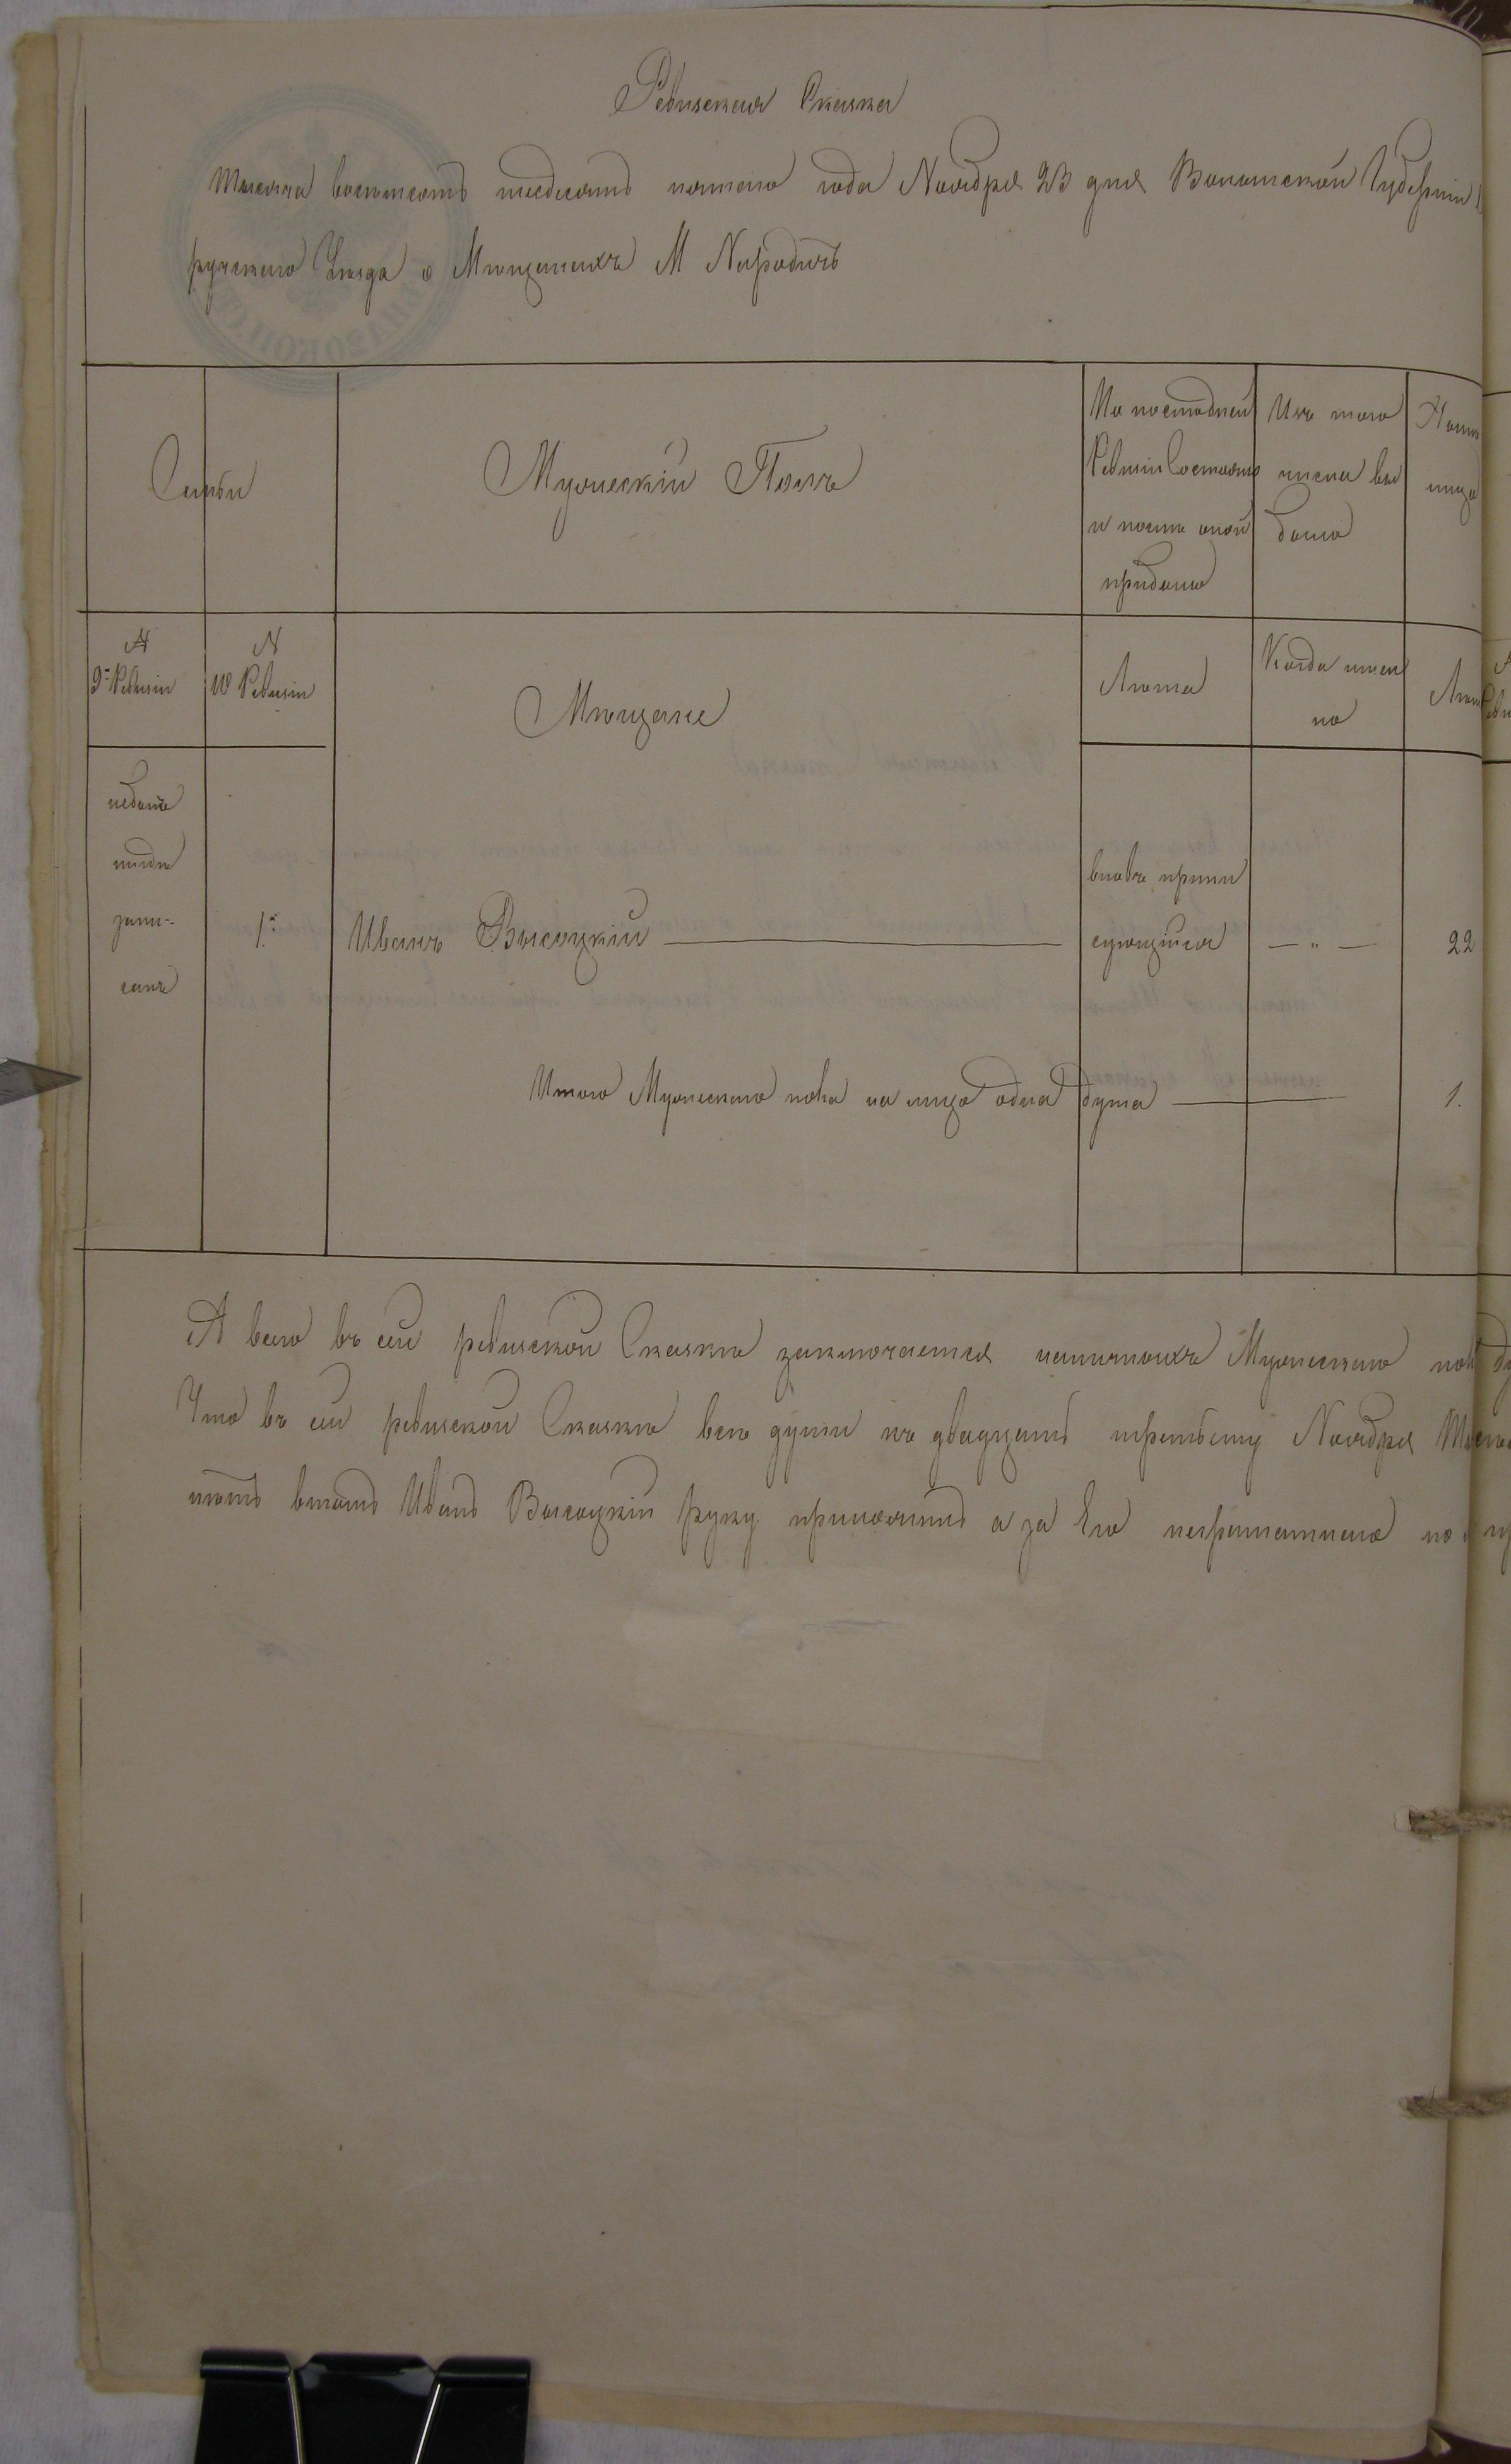 Ревизская Сказка
Тысяча восемсотъ шесдесятъ пятаго года Ноября 23 дня Волынской Губерніи
ручскаго Уезда о Мещанахъ М Народичъ
Семьи
Мужескій Полъ
По последней
Ревизіи Состояло
и после оной
прибыло
Изъ того
числа вы
было
Ныне
лицо
N
9й Ревизіи
N
10 Ревизіи
Мещане
Лета
Когда имен
но
Лет
небылъ
нигде
запи-
санъ
1й
Иванъ Высоцкій
вновъ припи
сующійся
— " —
22
Итого Мужескаго пола на лицо одна душа
1.
А всего въ сей ревизской Сказке заключается наличныхъ Мужескаго пол
Что въ сей ревизской Сказке все души къ двадцать третьему Ноября
Иванъ Высоцкій руку приложилъ а за Его неграматнаго по